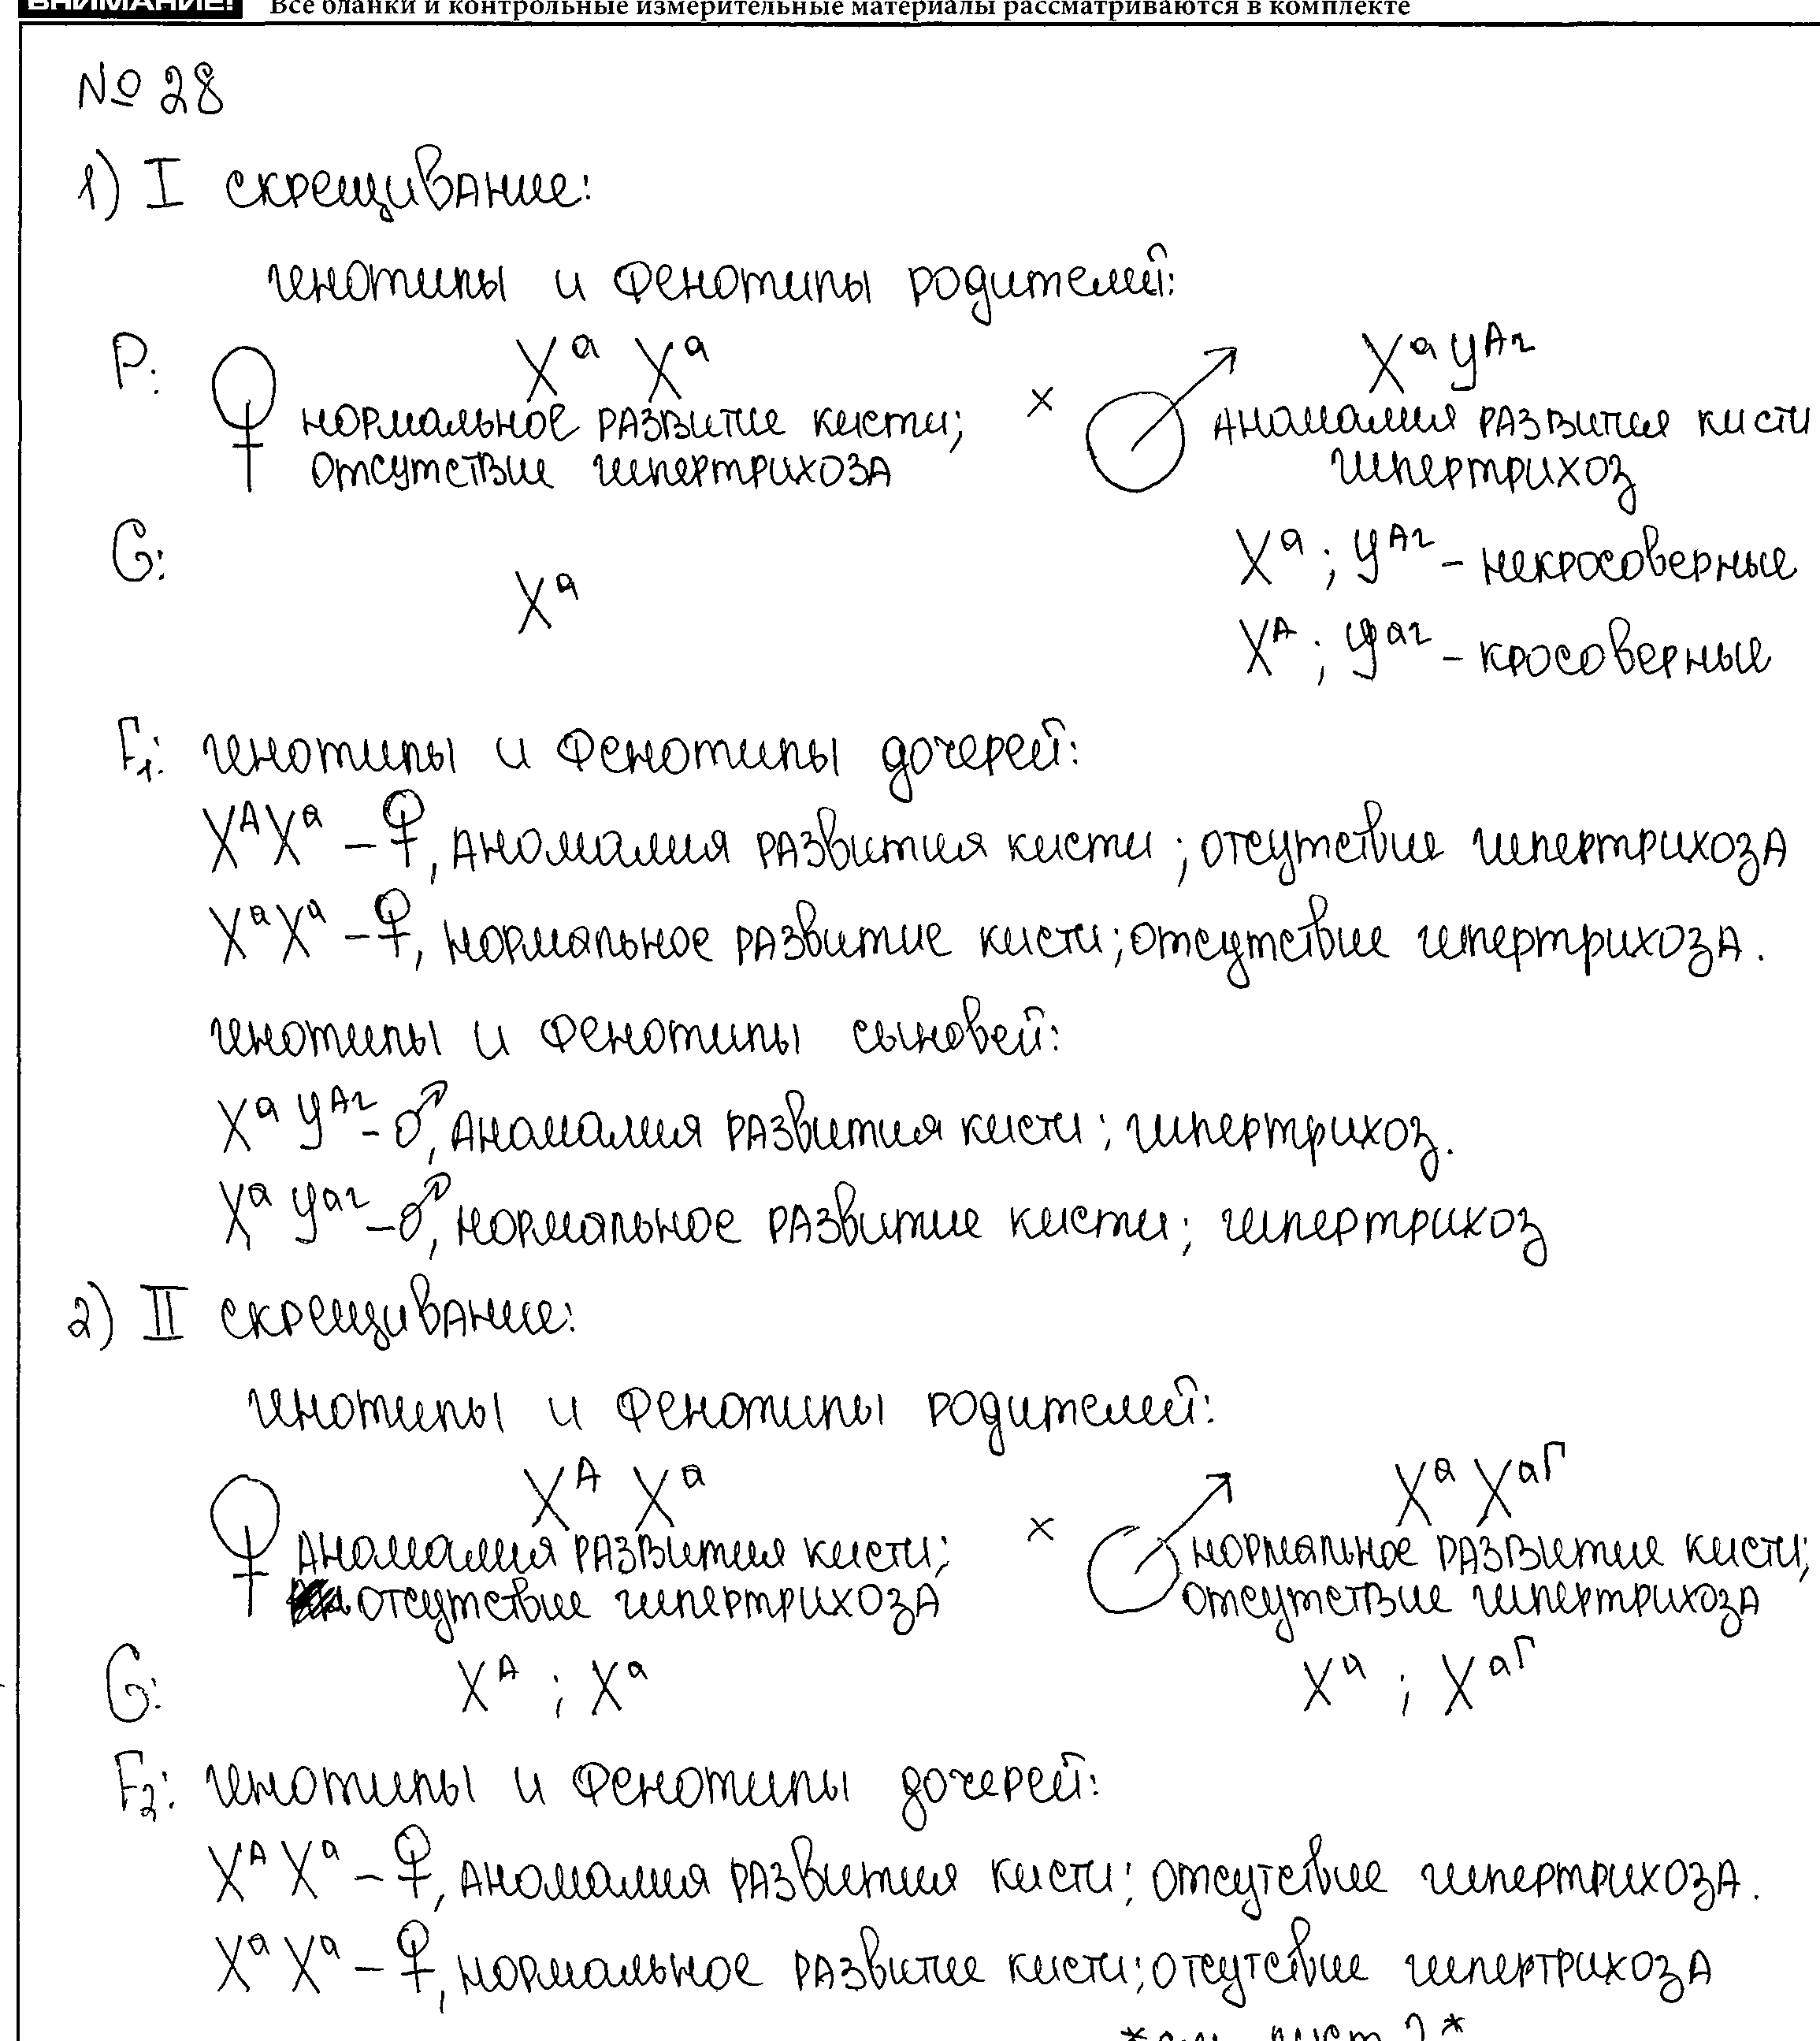 ВНИМАНИЕ! Все бланки и контрольные измерительные материалы рассматриваются в комплекте
№ 28
1) I скрещивание:
генотипы и фенотипы родителей:
P: ♀ XᵃXᵃ × ♂ XᵃYᴬᶻ
нормальное развитие кисти; аномалия развития кисти
отсутствие гипертрихоза гипертрихоз
G: Xᵃ Xᵃ; Yᴬᶻ – некросоверные
Xᴬ; Yᵃᶻ – кросоверные
F₁: генотипы и фенотипы дочерей:
XᴬXᵃ – ♀, аномалия развития кисти; отсутствие гипертрихоза
XᵃXᵃ – ♀, нормальное развитие кисти; отсутствие гипертрихоза.
генотипы и фенотипы сыновей:
XᵃYᴬᶻ – ♂, аномалия развития кисти; гипертрихоз.
XᵃYᵃᶻ – ♂, нормальное развитие кисти; гипертрихоз
2) II скрещивание:
генотипы и фенотипы родителей:
♀ XᴬXᵃ × ♂ XᵃXᵃᴦ
аномалия развития кисти; нормальное развитие кисти;
отсутствие гипертрихоза отсутствие гипертрихоза
G: Xᴬ; Xᵃ Xᵃ; Xᵃᴦ
F₂: генотипы и фенотипы дочерей:
XᴬXᵃ – ♀, аномалия развития кисти; отсутствие гипертрихоза.
XᵃXᵃ – ♀, нормальное развитие кисти; отсутствие гипертрихоза